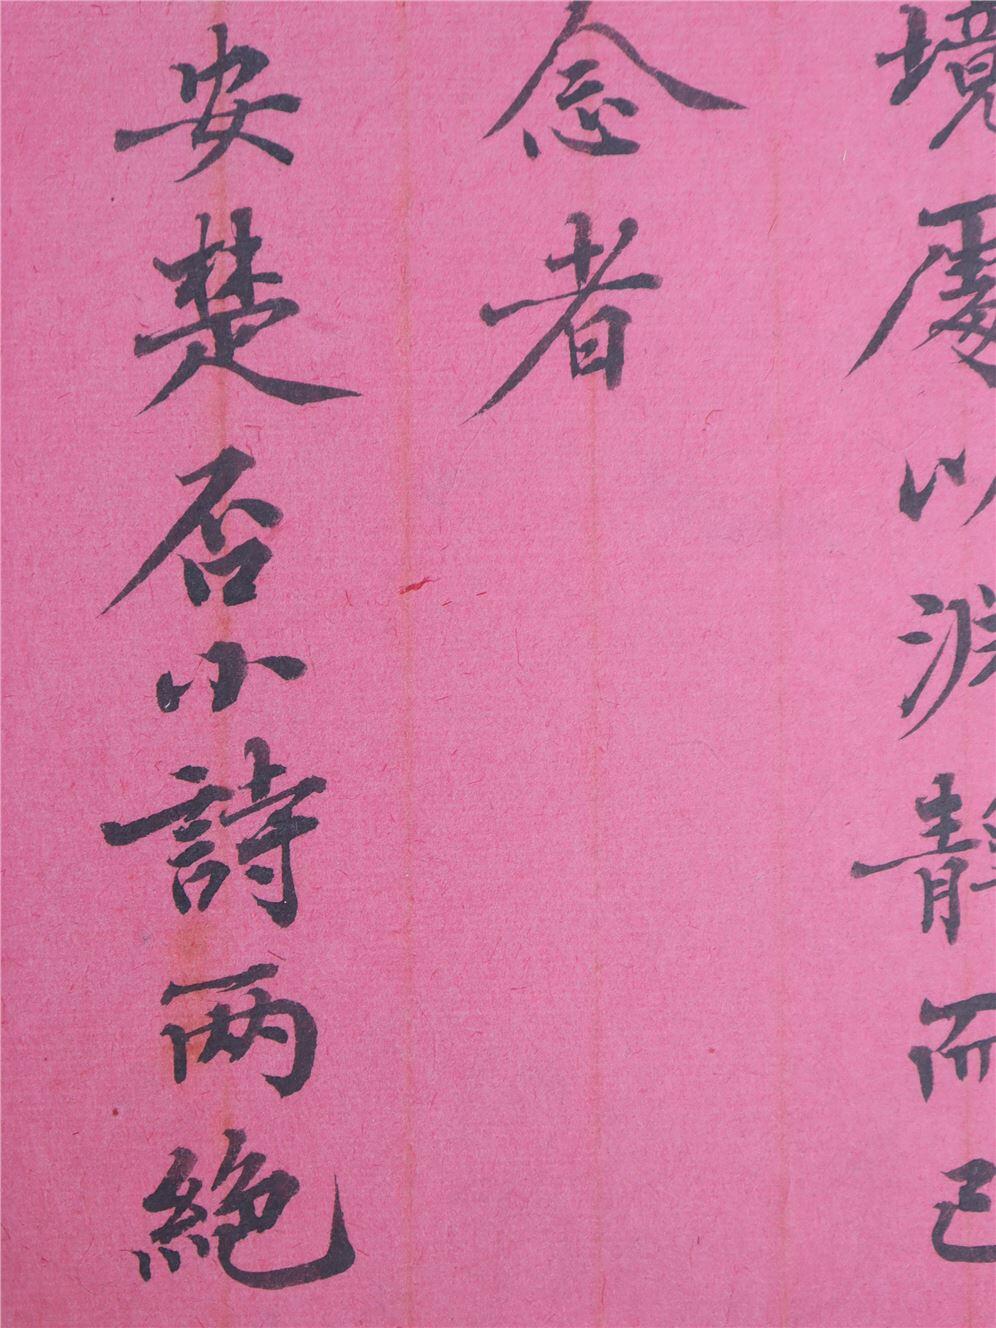 境處以淵靜而已
念者
安楚否小詩兩絕